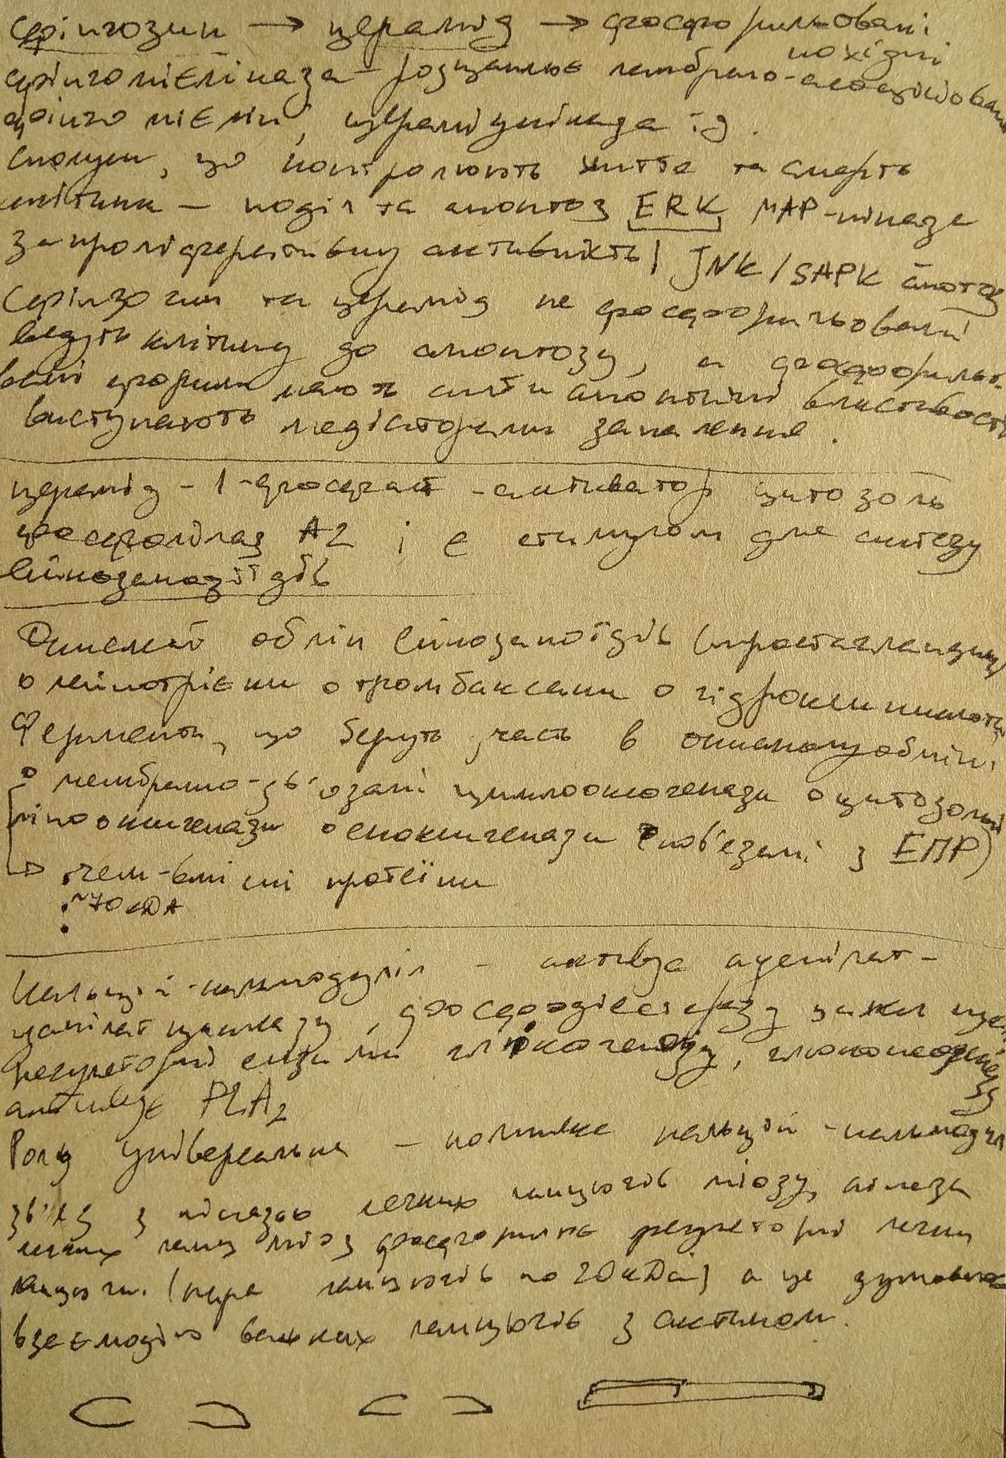 сфінгозин → церамід → фосфорильовані
похідні
сфінгомієліназа – розщеплює мембрано-асоційован
сфінгомієлін, церамідкіназа і д.
сполуки, що контролюють життя та смерть
клітини – поділ та апоптоз ERK MAP-кіназа
за проліферативну активність / JNK/SAPK апоптоз
Сфінгозин та церамід не фосфорильовані
ведуть клітину до апоптозу, а фосфорильо-
вані форми мають антиапоптичні властивості
виступають медіаторами запалення.
церамід – 1-фосфат – активатор цитозоль
фосфоліпаз А2 і є стимулом для синтезу
ейкозаноїдів
обмін ейкозаноїдів (простагландини
о лейкотрієни о тромбоксани о гідроксикислоти
Ферменти, що беруть участь в обміні
о мембрано-зв'язані циклооксигенази о цитозольні
ліпооксигенази о епоксигенази (пов'язані з ЕПР)
→ гем-вмісні протеїни
~70 кДА
Кальцій-кальмодулін – активує аденілат-
циклазу, фосфодіестеразу
регуляторні ензими глікогенезу, глюконеогенезу
активує PLA2
Роль універсальна – комплекс кальцій-кальмодулін
зв'яз з кіназою легких ланцюгів міозу, кіназа
легких ланц міоз фосфорилює регуляторні легкі
ланцюги. (пара ланцюгів по 20 кДа) а це зумовлює
взаємодію важких ланцюгів з актином.